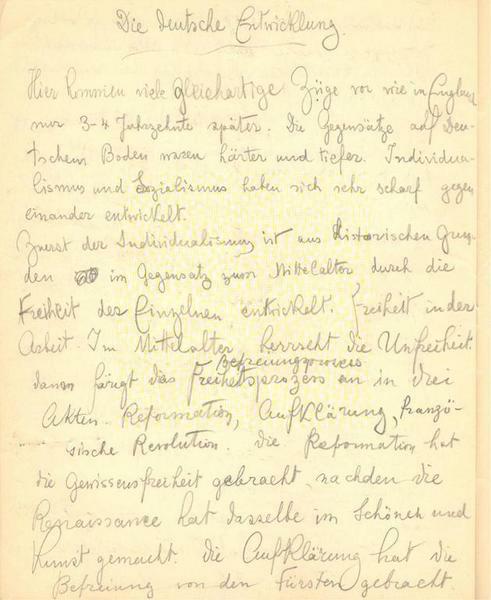 Die deutsche Entwicklung.
Hier kommen viele gleichartige Züge vor wie in England
nur 3-4 Jahrzehnte später. Die Gegensätze auf Deu-
tschem Boden waren härter und tiefer. Individua-
lismus und Sozialismus haben sich sehr scharf gegen
einander entwickelt.
Zuerst der Individualismus ist aus historischen Grün-
den im Gegensatz zum Mittelalter durch die
Freiheit der Einzelnen entwickelt. Freiheit in der
Arbeit. Im Mittelalter herrscht die Unfreiheit.
Befreiungsprozess
dann fängt das Freiheitsprozess an in drei
Akten. Reformation, Aufklärung, Franzö-
sische Revolution. Die Reformation hat
die Gewissensfreiheit gebracht, nachden die
Renaissance hat dasselbe im Schönen und
Kunst gemacht. Die Aufklärung hat die
Befreiung von den Fürsten gebracht.